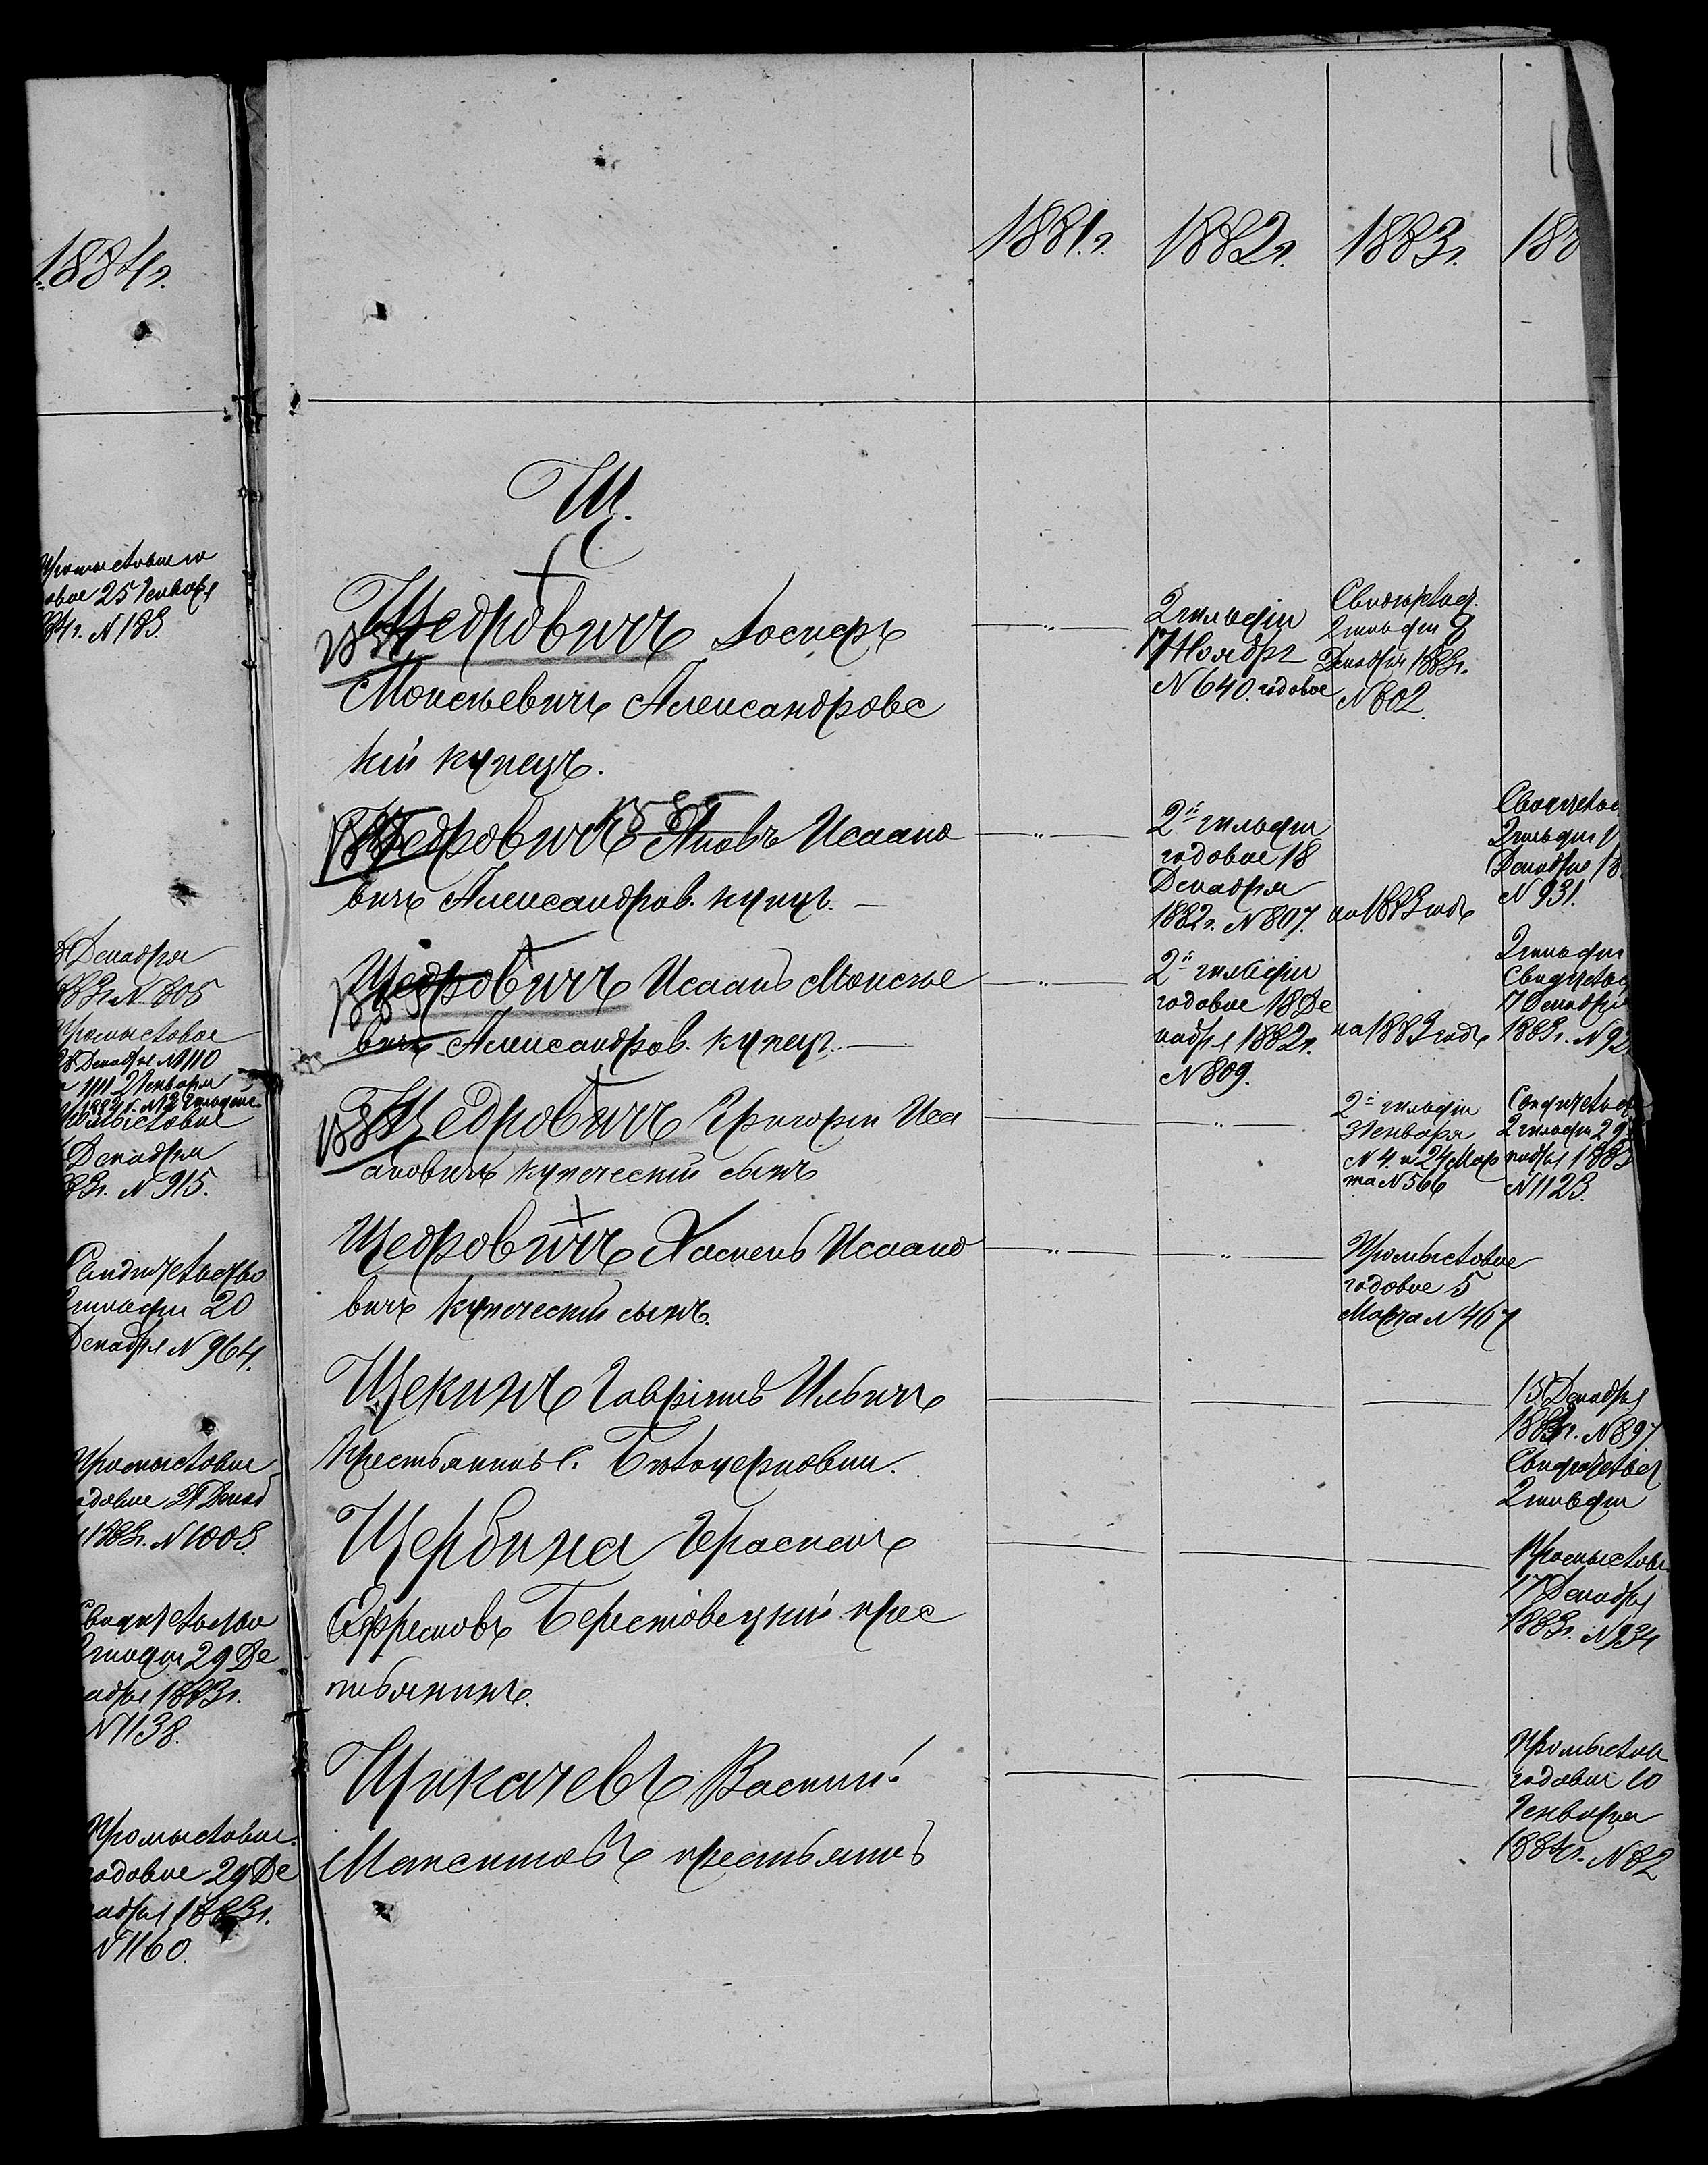 1884г.
25 Генваря
N 183.
Декабря
N 805
Промысловое
28 Декабря N 1110
Декабря
N 915.
Свидѣтельство
2 гильдіи 20
Декабря N 964.
Промысловое
годовое 21 Декаб
1883г. N 1003.
Свидѣтельство
2 гильдіи 29 Де
кабря 1883г.
N 1138.
Промысловое
годовое 29 Де
кабря 1883г.
N 1160.
1881.г. 1882г. 1883г. 188
Щ.
Щедровичъ Іосифъ
Моисѣевичъ Александровс
кій купецъ.
2 гильдіи
17 Ноября
N 640. годовое
Свидѣтел.
2 гильдіи 8
Декабря 1883г.
N 802.
Щедровичъ Яковъ Исаако
вичъ Александров. купец. —
2й гильдіи
годовое 18
Декабря
1882г. N 807.
на 1883 годъ
Свидѣтел
2 гильдіи
Декабря 18
N 931.
Щедровичъ Исаакъ Моисѣе
вичъ Александров. купец. —
2й гильдіи
годовое 18 Де
кабря 1882г.
N 809.
на 1883 годъ
2 гильдіи
Свидѣтел
17 Декабря
1883г. N 92
Щедровичъ Григорій Иса
аковичъ купеческій сынъ
2й гильдіи
3 Генваря
N 4. и 24 Мар
та N 566
Свидѣтель
2 гильдіи 29
кабря 1883
N 1123.
Щедровичъ Исаако
вичъ купеческій сынъ.
Промысловое
годовое 5
Марта N 467
Щекинъ Гавріилъ Ильичъ
крестьянинъ с. Бѣлоцерковки.
15 Декабря
1883г. N 897
Свидѣтел
2 гильдіи
Щербина Герасимъ
Ефремовъ Берестовецкій крес
тьянинъ.
Промыслов
17 Декабря
1883г. N 934
Щикачевъ Василій
Максимовъ крестьянинъ
Промыслов
годовое 10
Генваря
1884г. N 82